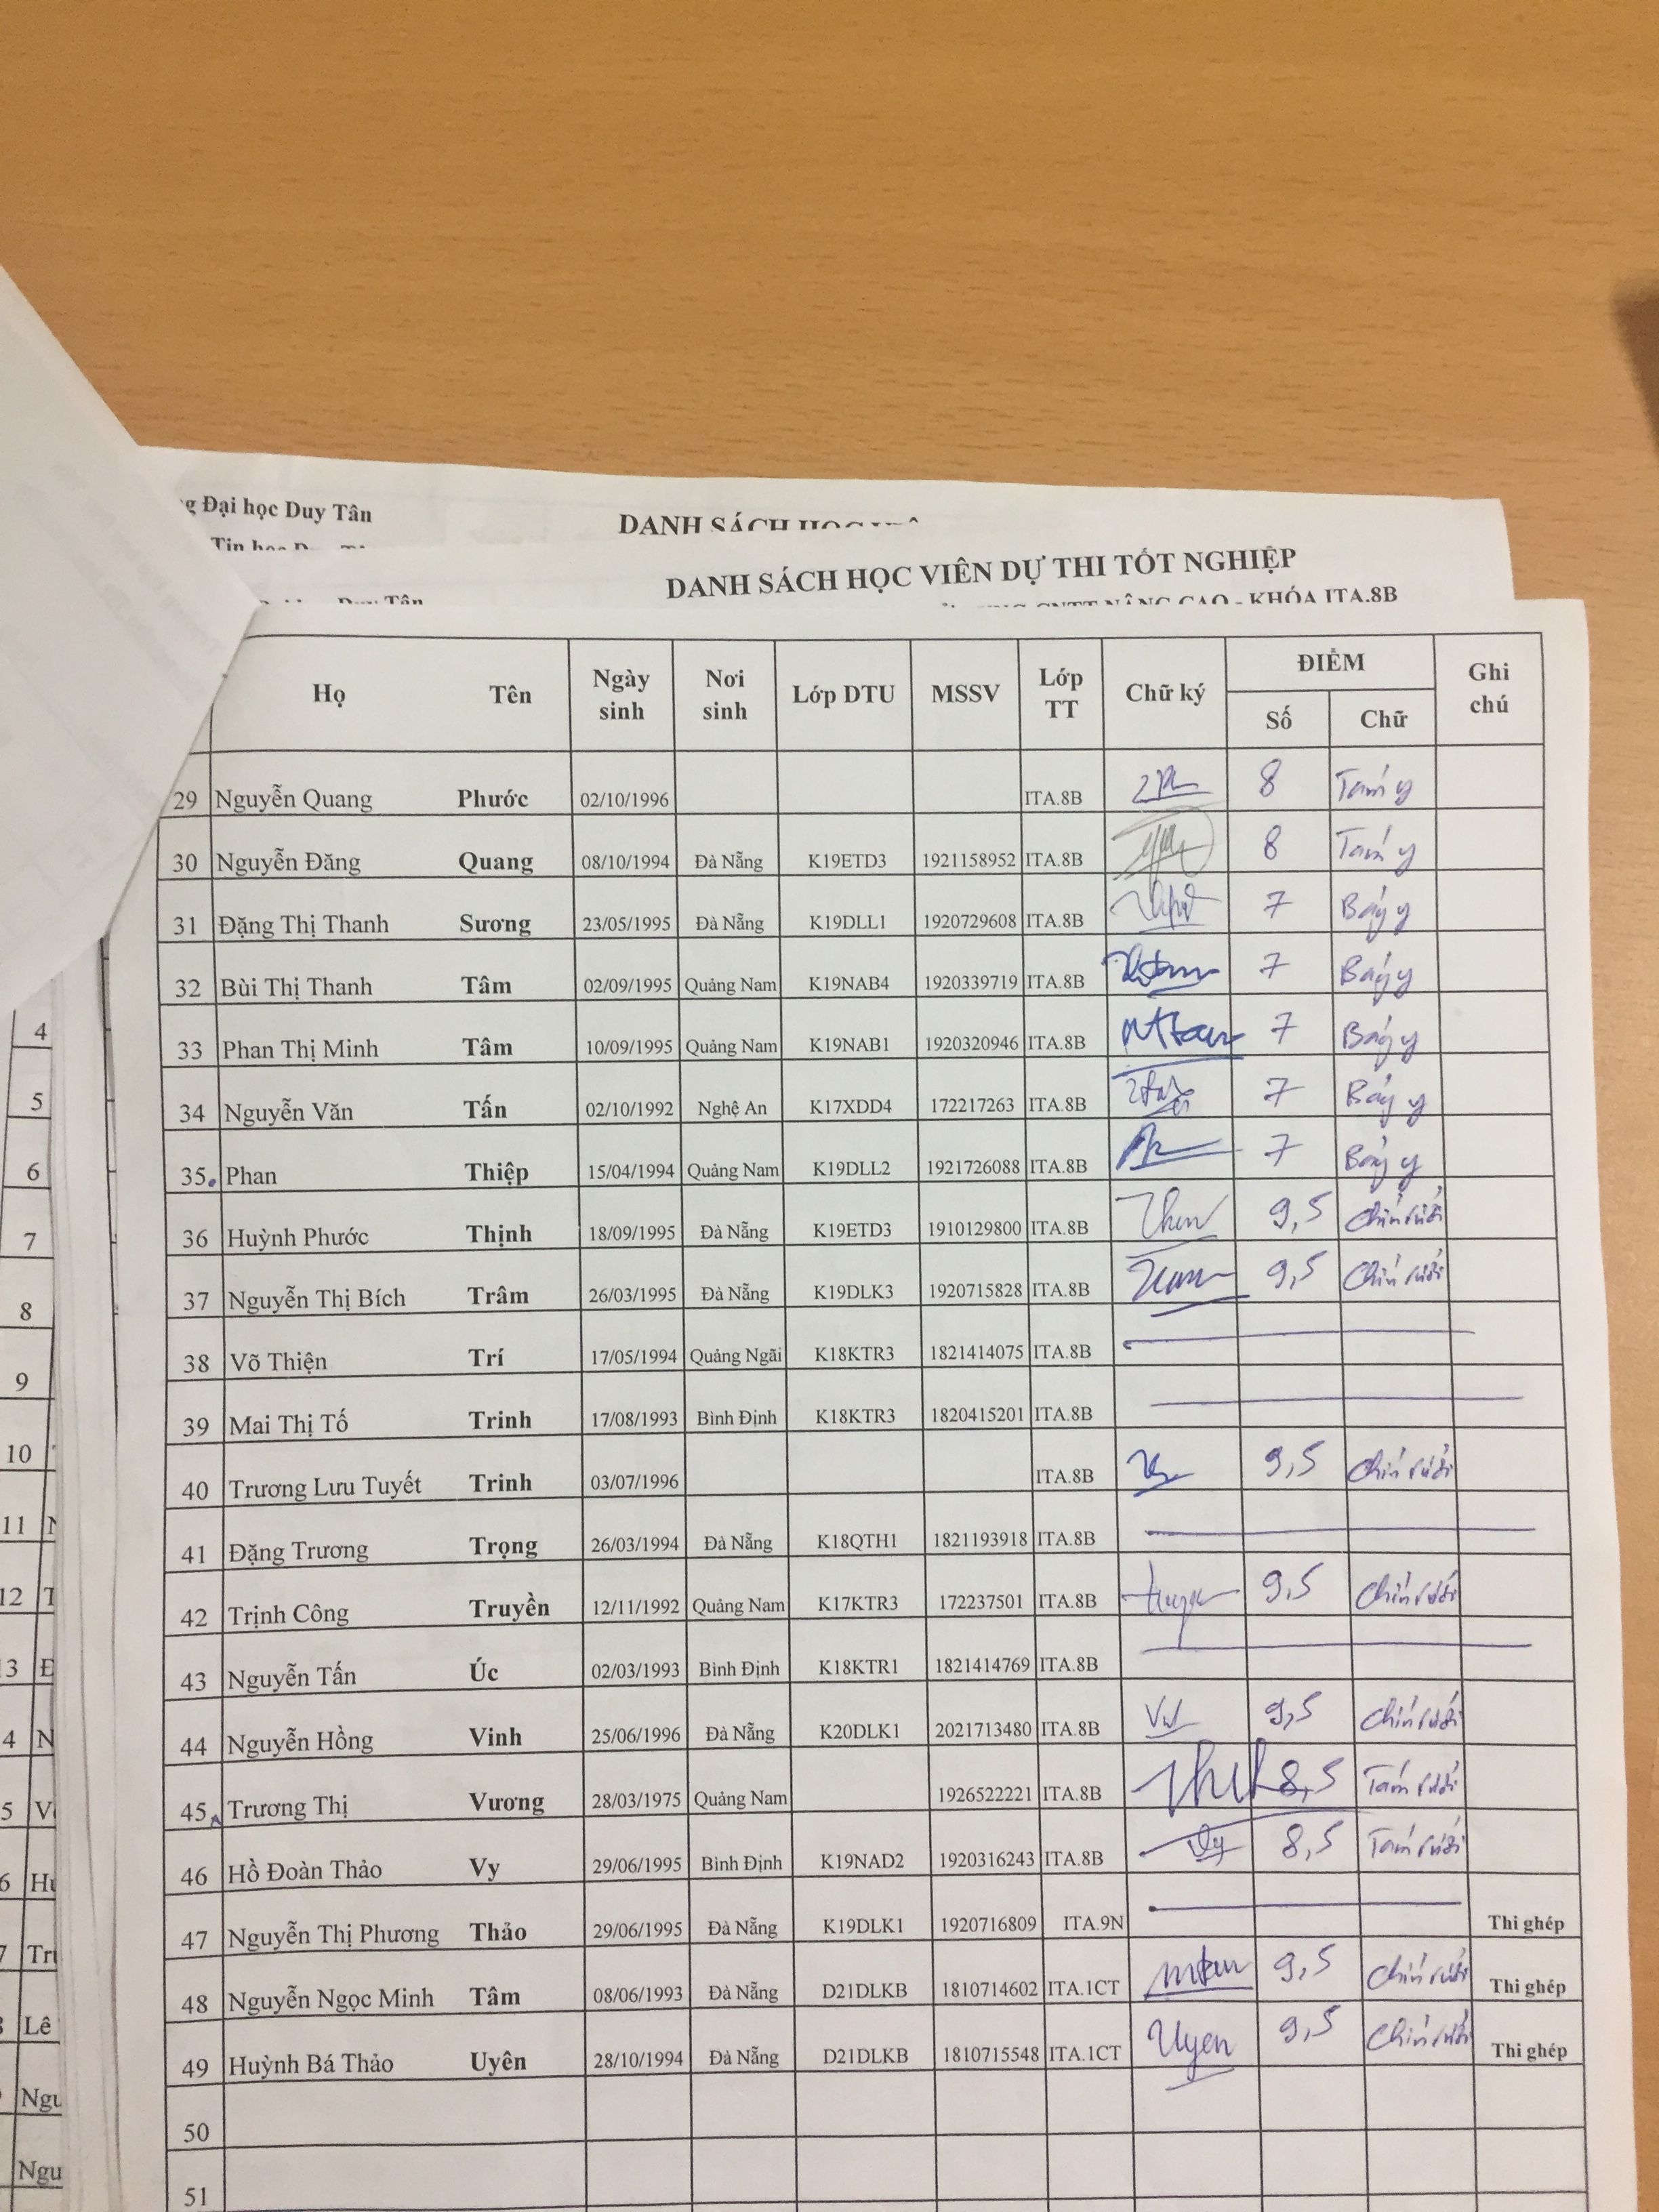 Đại học Duy Tân
DANH SÁCH
Tin học
DANH SÁCH HỌC VIÊN DỰ THI TỐT NGHIỆP
Duy Tân
CNTT NÂNG CAO - KHÓA ITA.8B
Họ Tên Ngày sinh Nơi sinh Lớp DTU MSSV Lớp TT Chữ ký ĐIỂM Số Chữ Ghi chú
29 Nguyễn Quang Phước 02/10/1996 ITA.8B 8 Tám y
30 Nguyễn Đăng Quang 08/10/1994 Đà Nẵng K19ETD3 1921158952 ITA.8B 8 Tám y
31 Đặng Thị Thanh Sương 23/05/1995 Đà Nẵng K19DLL1 1920729608 ITA.8B 7 Bảy y
32 Bùi Thị Thanh Tâm 02/09/1995 Quảng Nam K19NAB4 1920339719 ITA.8B 7 Bảy y
33 Phan Thị Minh Tâm 10/09/1995 Quảng Nam K19NAB1 1920320946 ITA.8B 7 Bảy y
34 Nguyễn Văn Tấn 02/10/1992 Nghệ An K17XDD4 172217263 ITA.8B 7 Bảy y
35 Phan Thiệp 15/04/1994 Quảng Nam K19DLL2 1921726088 ITA.8B 7 Bảy y
36 Huỳnh Phước Thịnh 18/09/1995 Đà Nẵng K19ETD3 1910129800 ITA.8B 9,5 Chín rưỡi
37 Nguyễn Thị Bích Trâm 26/03/1995 Đà Nẵng K19DLK3 1920715828 ITA.8B 9,5 Chín rưỡi
38 Võ Thiện Trí 17/05/1994 Quảng Ngãi K18KTR3 1821414075 ITA.8B
39 Mai Thị Tố Trinh 17/08/1993 Bình Định K18KTR3 1820415201 ITA.8B
40 Trương Lưu Tuyết Trinh 03/07/1996 ITA.8B 9,5 Chín rưỡi
41 Đặng Trương Trọng 26/03/1994 Đà Nẵng K18QTH1 1821193918 ITA.8B
42 Trịnh Công Truyền 12/11/1992 Quảng Nam K17KTR3 172237501 ITA.8B 9,5 Chín rưỡi
43 Nguyễn Tấn Úc 02/03/1993 Bình Định K18KTR1 1821414769 ITA.8B
44 Nguyễn Hồng Vinh 25/06/1996 Đà Nẵng K20DLK1 2021713480 ITA.8B 9,5 Chín rưỡi
45 Trương Thị Vương 28/03/1975 Quảng Nam 1926522221 ITA.8B 8,5 Tám rưỡi
46 Hồ Đoàn Thảo Vy 29/06/1995 Bình Định K19NAD2 1920316243 ITA.8B Vy 8,5 Tám rưỡi
47 Nguyễn Thị Phương Thảo 29/06/1995 Đà Nẵng K19DLK1 1920716809 ITA.9N Thi ghép
48 Nguyễn Ngọc Minh Tâm 08/06/1993 Đà Nẵng D21DLKB 1810714602 ITA.1CT 9,5 Chín rưỡi Thi ghép
49 Huỳnh Bá Thảo Uyên 28/10/1994 Đà Nẵng D21DLKB 1810715548 ITA.1CT Uyen 9,5 Chín rưỡi Thi ghép
50
51
4
5
6
7
8
9
10
11
12
Lê